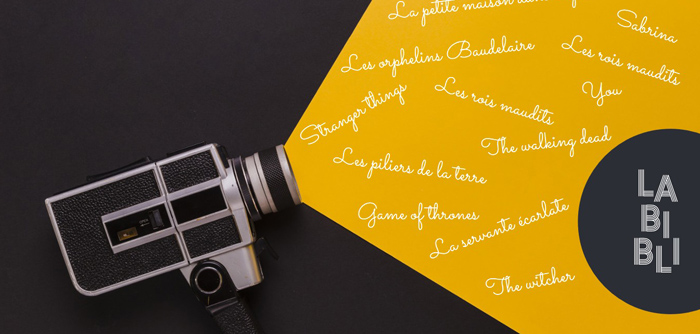 La petite maison dans
Sabrina
Les orphelins Baudelaire
Les rois maudits
You
Stranger things
Les rois maudits
The walking dead
Les piliers de la terre
Game of thrones
La servante écarlate
The witcher
LA
BI
BLI